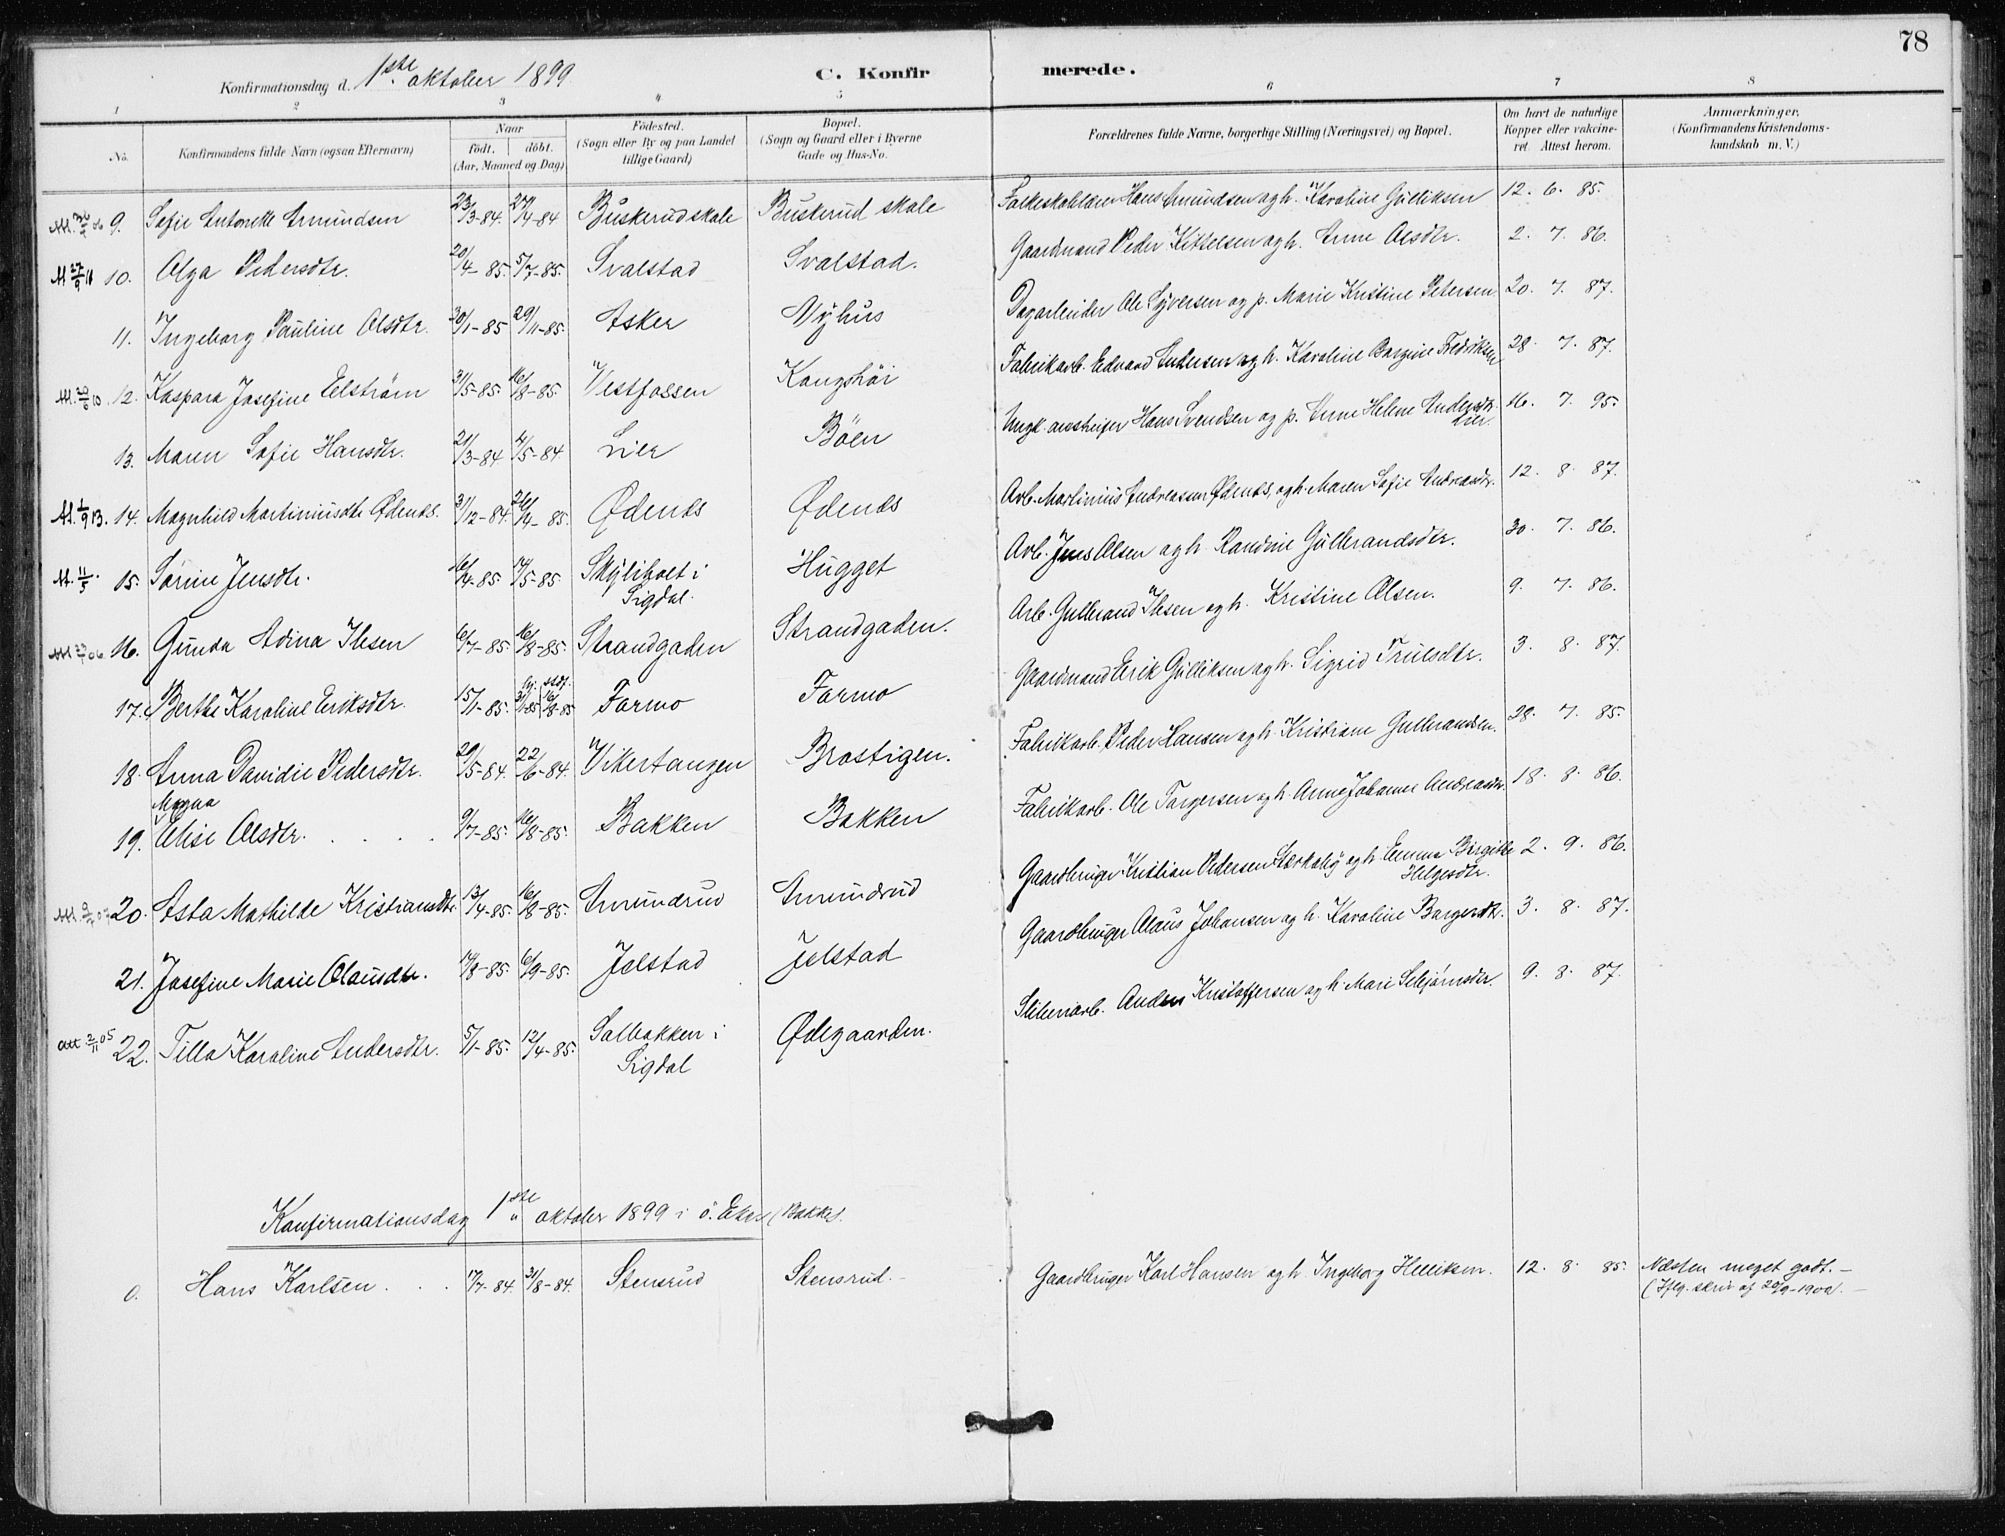 78
Konfirmationsdag d. 1ste oktober 1899
C. Konfir merede.
1 2 3 4 5 6 7 8
No.
Konfirmandens fulde Navn (ogsaa Efternavn)
Naar
födt. döbt.
(Aar, Maaned og Dag)
Födested.
(Sogn eller By og paa Landet
tillige Gaard)
Bopæl.
(Sogn og Gaard eller i Byerne
Gade og Hus-No.
Forældrenes fulde Navne, borgerlige Stilling (Næringsvei) og Bopæl.
Om havt de naturlige
Kopper eller vakcine-
ret. Attest herom.
Anmærkninger.
(Konfirmandens Kristendoms-
kundskab m. V.)
9. Sofie Antonette Amundsen 23/3-84 27/4-84 Buskerud skole Buskerud skole Folkeskolelærer Hans Amundsen og h. Karoline Gulliksen 12. 6. 85.
10. Olga Pedersdtr. 20/4-85. 5/7-85. Svalstad Svalstad. Gaardmand Peder Kittelsen og h. Anne Olsdtr. 2. 7. 86.
11. Ingeborg Pauline Olsdtr. 30/1-85 29/11-85. Asker Nyhus Dagarbeider Ole Syversen og p. Marie Kristine Petersen. 20. 7. 87.
12. Kaspara Josefine Elstrøm 31/5-85. 16/8-85. Vestfossen Kongshöi Fabrikarb. Edvard Andersen og h. Karoline Borgine Fredriksen 28. 7. 87.
13. Maren Sofie Hansdtr. 21/3-84 4/5-84 Lier Böen Ungk. anstriger Hans Svendsen og p. Anne Helene Andersdtr. Lier. 16. 7. 95.
14. Magnhild Martiniusdtr Ødends. 31/12-84. 26/4-85. Ødends Ødends Arb. Martinius Andreassen Ødends, og h. Maren Sofie Andreasdtr. 12. 8. 87.
15. Sørine Jensdtr. 16/4-85. 17/5-85 Skyliboet i Hugget Arb. Jens Olsen og h. Randine Gulbrandsdtr. 30. 7. 86.
Sigdal.
16. Gunda Adina Ibsen 6/7-85 16/8-85. Strandgaden Strandgaden. Arb. Gulbrand Ibsen og h. Kristine Olsen. 9. 7. 86.
17. Berthe Karoline Eriksdtr. 15/1-85. 31/1-85 16/8-85 Formo Formo Gaardmand Erik Gulliksen og h. Sigrid Trulsdtr. 3. 8. 87.
18. Anna Davidie Pedersdtr. 29/5-84. 22/6-84. Vikertangen Brostigen. Fabrikarb. Peder Hansen og h. Kristiane Gulbrandsen. 28. 7. 85.
Magna
19. Elise Olsdtr. . . . . 9/7-85. 16/8-85. Bakken Bakken Fabrikarb. Ole Torgersen og h. Anne Johanne Andreasdtr. 18. 8. 86.
20. Asta Mathilde Kristiansdtr. 13/4-85. 16/8-85. Amundrud Amundrud Gaardbruger Kristian Pedersen og h. Emma Birgitte 2. 9. 86.
Helgesdtr.
21. Josefine Marie Olausdtr. 17/8-85. 6/9-85. Jelstad Jelstad Gaardbruger Olaus Johansen og h. Karoline Borgersdtr. 3. 8. 87.
Att 2/11 05 22. Tilla Karoline Andersdtr. 5/1-85. 12/4-85. Solbakken i Ødegaarden. Sliberiarb. Anders Kristoffersen og h. Mari Sebjörnsdtr. 9. 8. 87.
Sigdal
Konfirmationsdag 1ste oktober 1899 i ö. Eker (Bakke).
0. Hans Karlsen . . . 17/7-84. 31/8-84. Stensrud Stensrud. Gaardbruger Karl Hansen og h. Ingeborg Helliksen. 12. 8. 85. Næsten meget godt. —
(Iflg. skriv af 20/9-1900. —